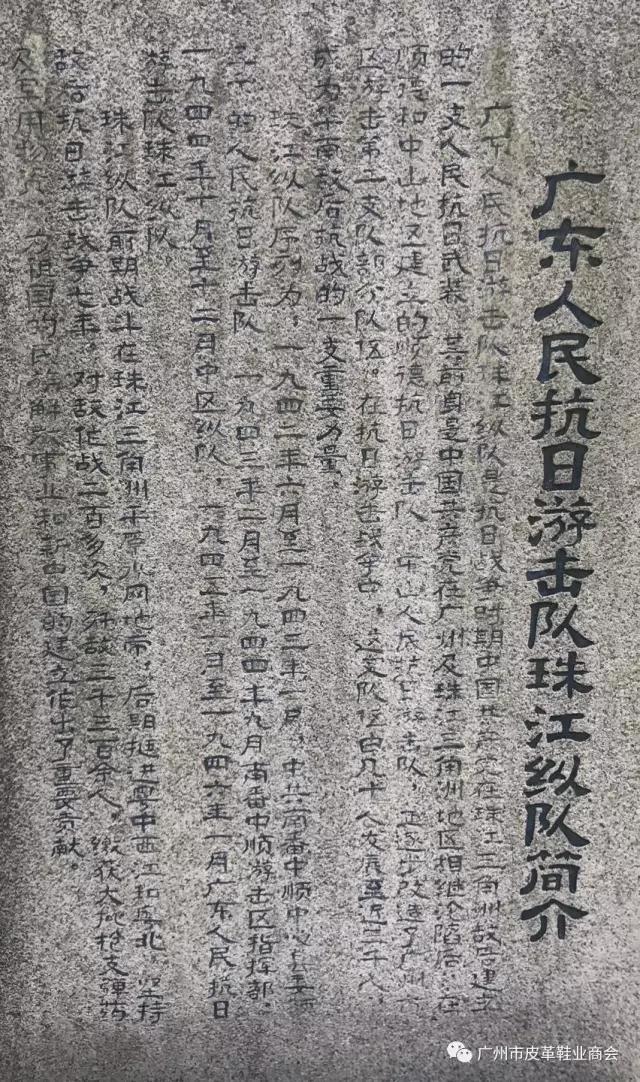 广东人民抗日游击队珠江纵队简介
广东人民抗日游击队珠江纵队是抗日战争时期中国共产党在珠江三角洲敌后建立
的一支人民抗日武装。其前身是中国共产党在广州及珠江三角洲地区相继沦陷后,在
顺德和中山地区建立的顺德抗日游击队、中山人民抗日游击队,还逐步改造了广州
区游击第二支队部分队伍。在抗日游击战争中,这支队伍由几十人发展至近三千人,
成为华南敌后抗战的一支重要力量。
珠江纵队序列为:一九四二年六月至一九四三年一月,中共南番中顺中心县委
的人民抗日游击队,一九四三年二月至一九四四年九月南番中顺游击区指挥部,
一九四四年十月至十二月中区纵队,一九四五年一月至一九四六年一月广东人民抗日
游击队珠江纵队。
珠江纵队前期战斗在珠江三角洲平原水网地带,后期挺进粤中西江和粤北,坚持
敌后抗日游击战争七年,对敌作战二百多次,歼敌三千三百余人,缴获大批枪支弹药
及军用物资,为祖国的民族解放事业和新中国的建立作出了重要贡献。
广州市皮革鞋业商会